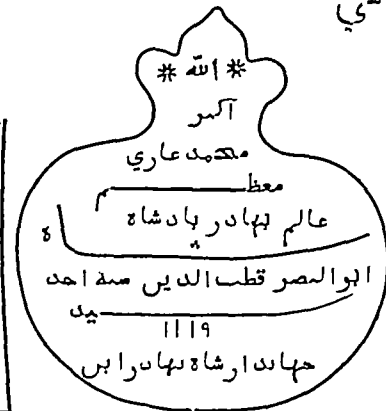 شي
* الله *
اكبر
محمد عاري
معظم
عالم بهادر بادشاه
ه
ابو النصر قطب الدين سنه احد
سيد
١١١٩
جهاندار شاه بهادر ابن